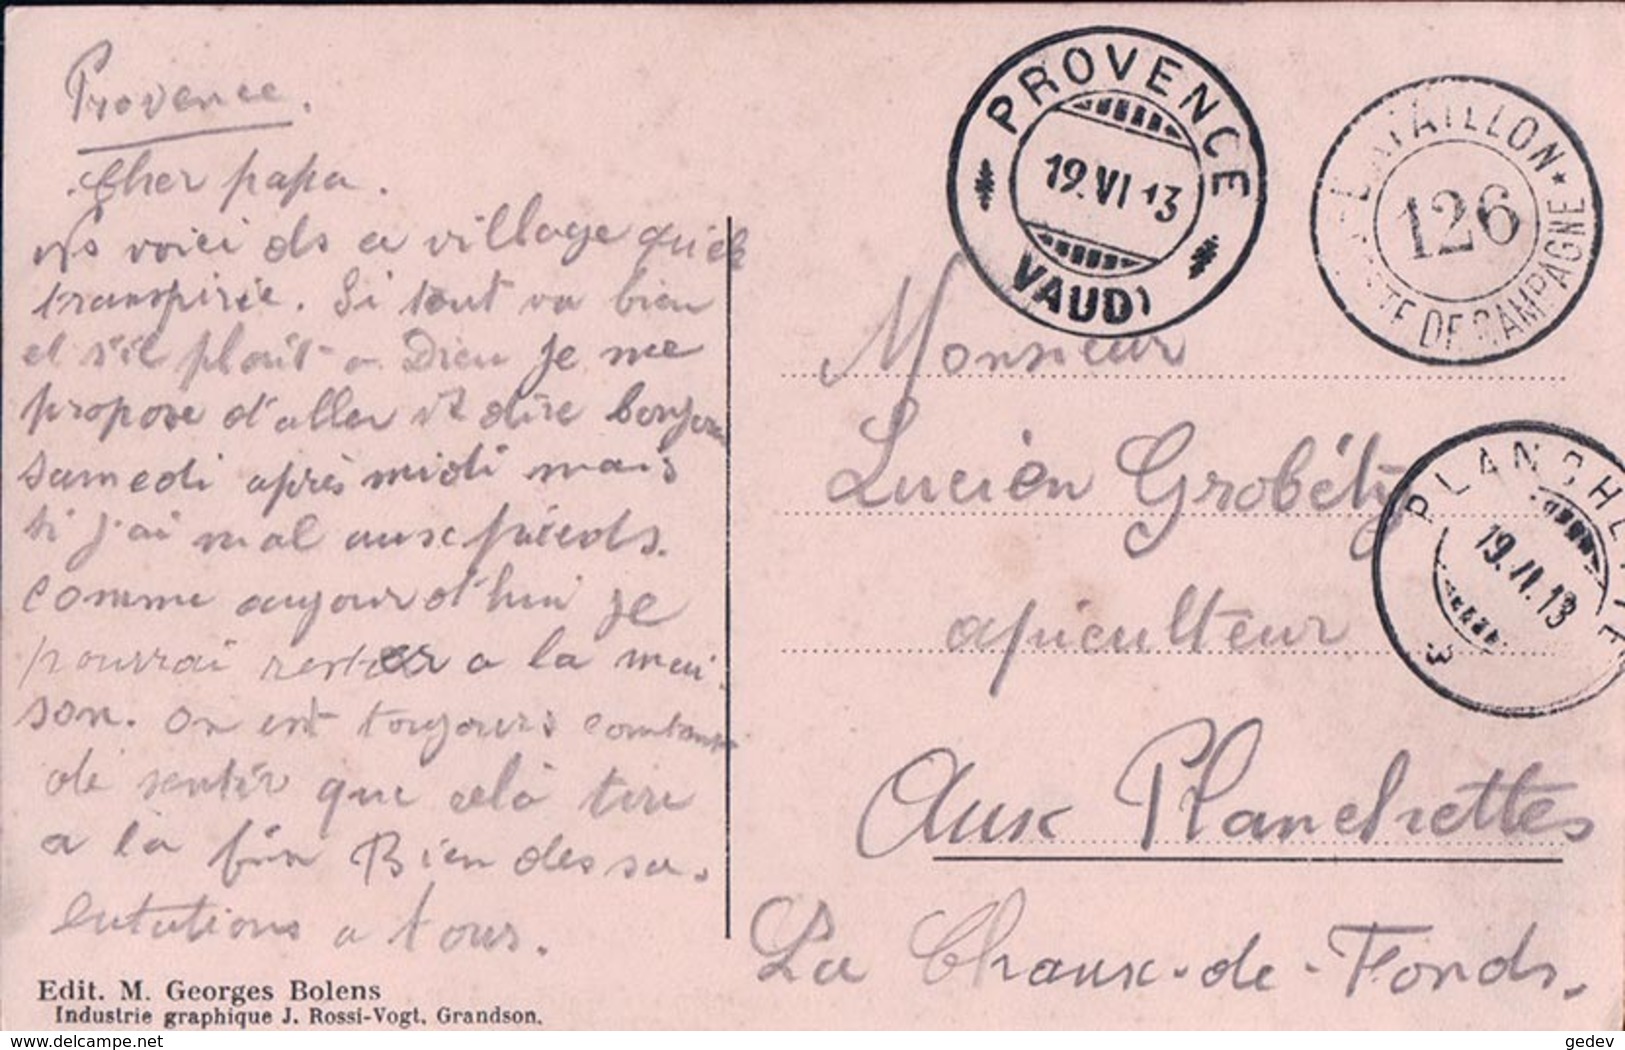 Provence.
Cher papa.
Ns voici ds a village
transpirée. Si tout va bien
et s'il plait a Dieu je me
propose d'aller vs dire bonjour
samedi après midi mais
si j'ai mal aux pieds.
comme aujourd'hui je
pourrai rester a la mai-
son. On est toujours content
de sentir que celà tire
a la fin Bien des sa-
lutations a tous.
Edit. M. Georges Bolens
Industrie graphique J. Rossi-Vogt, Grandson.
PROVENCE
19.VI 13
(VAUD)
BATAILLON
126
POSTE DE CAMPAGNE
Monsieur
Lucien Grobéty
apiculteur
Aux Planchettes
La Chaux-de-Fonds.
PLANCHETTES
19.VI.13
https://www.delcampe.net
gedev